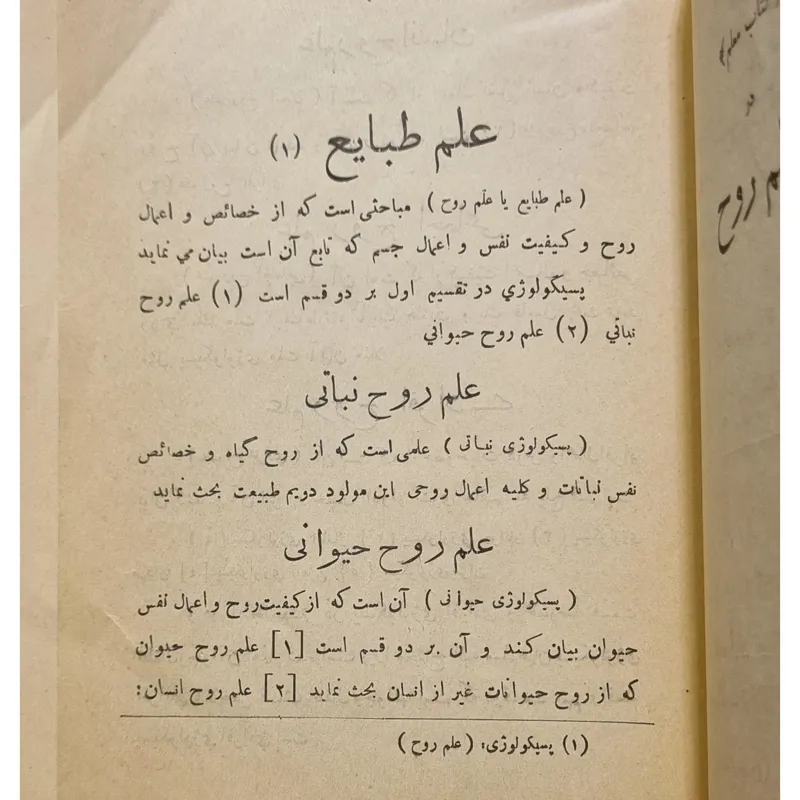 علم طبایع (۱)
( علم طبایع یا علم روح ) مباحثی است که از خصائص و اعمال
روح و کیفیت نفس و اعمال جسم که تابع آن است بیان می نماید
پسیکولوژی در تقسیم اول بر دو قسم است (۱) علم روح
نباتی (۲) علم روح حیوانی
علم روح نباتی
( پسیکولوژی نباتی ) علمی است که از روح گیاه و خصائص
نفس نباتات و کلیه اعمال روحی این مولود دویم طبیعت بحث نماید
علم روح حیوانی
( پسیکولوژی حیوانی ) آن است که از کیفیت روح و اعمال نفس
حیوان بیان کند و آن بر دو قسم است [۱] علم روح حیوان
که از روح حیوانات غیر از انسان بحث نماید [۲] علم روح انسان:
(۱) پسیکولوژی: (علم روح)
کتاب
در
روح